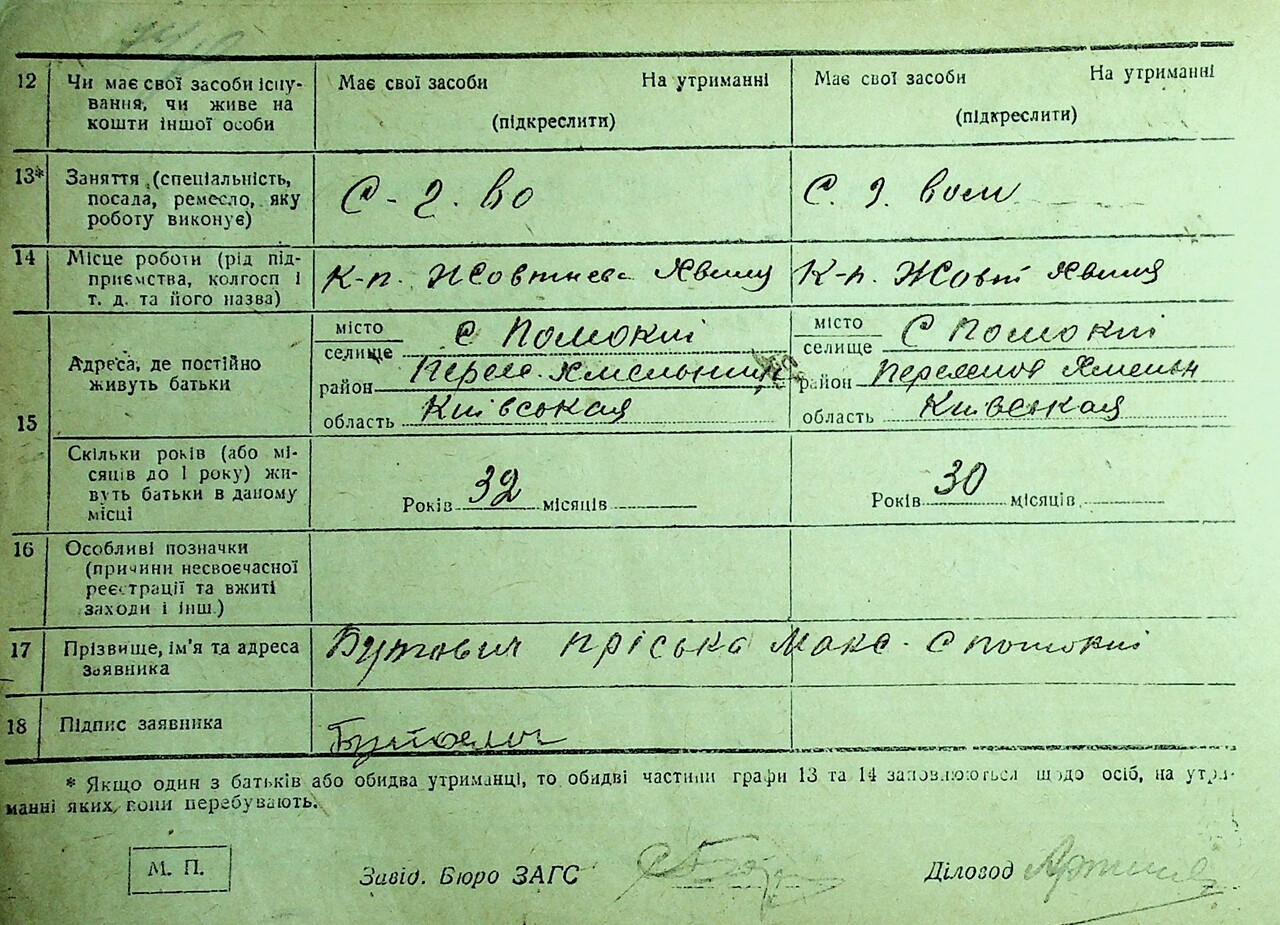 12 Чи має свої засоби існу-
вання, чи живе на
кошти іншої особи
Має свої засоби На утриманні
(підкреслити)
Має свої засоби На утриманні
(підкреслити)
13* Заняття (спеціальність,
посада, ремесло, яку
роботу виконує)
С-г. во
С. г. вом
14 Місце роботи (рід під-
приємства, колгосп і
т. д. та його назва)
К-п. Жовтнева Хвиля
К-п. Жовт Хвиля
15 Адреса, де постійно
живуть батьки
місто
селище С Помокші
район Переяс. Хмельниц
область Київськая
місто
селище С Помокші
район Хмельн
область Київськая
Скільки років (або мі-
сяців до 1 року) жи-
вуть батьки в даному
місці
Років 32 місяців
Років 30 місяців
16 Особливі позначки
(причини несвоєчасної
реєстрації та вжиті
заходи і інш.)
17 Прізвище, ім'я та адреса
заявника
Бутович Пріська Макс. С Помокші
18 Підпис заявника
Бутович
* Якщо один з батьків або обидва утриманці, то обидві частини графи 13 та 14 заповлюються щодо осіб, на утри-
манні яких вони перебувають.
М. П.
Завід. Бюро ЗАГС
Діловод